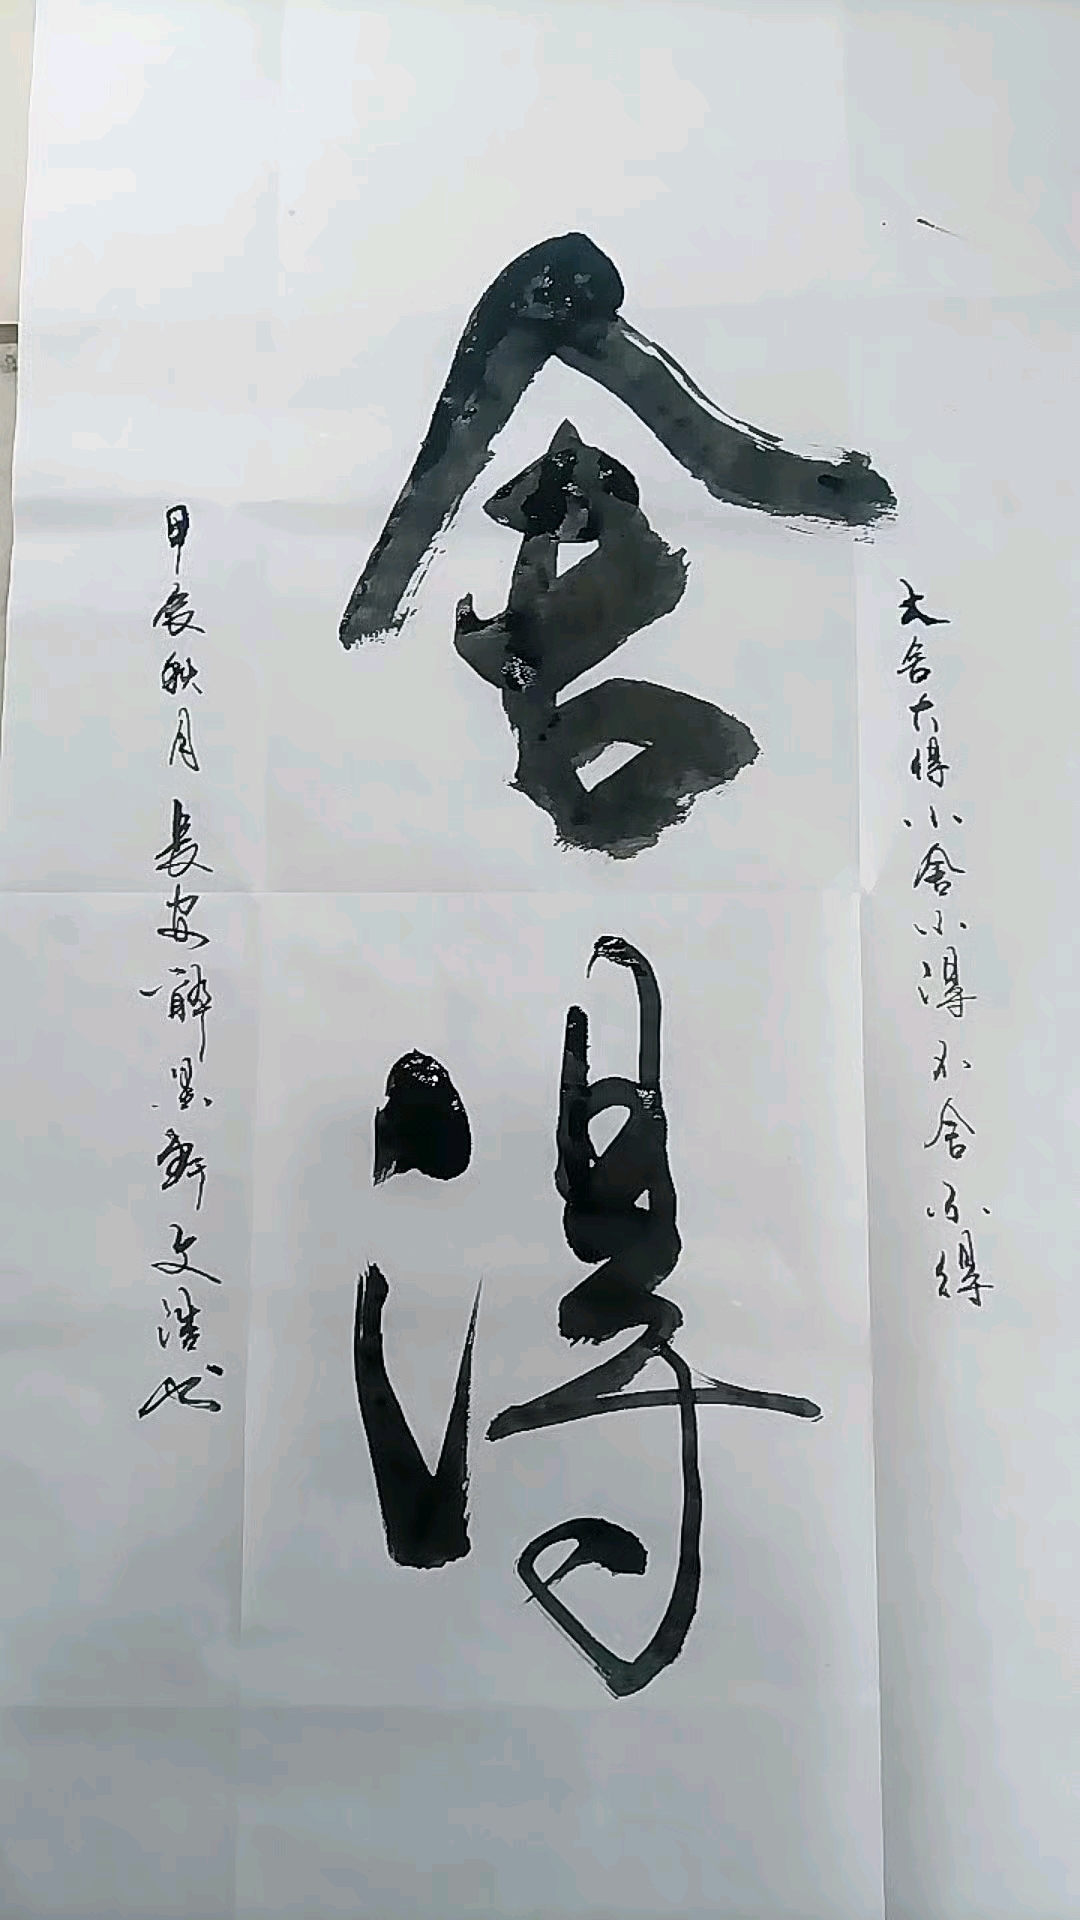 大舍大得小舍小得不舍不得
舍得
甲辰秋月长安醉墨轩文浩书